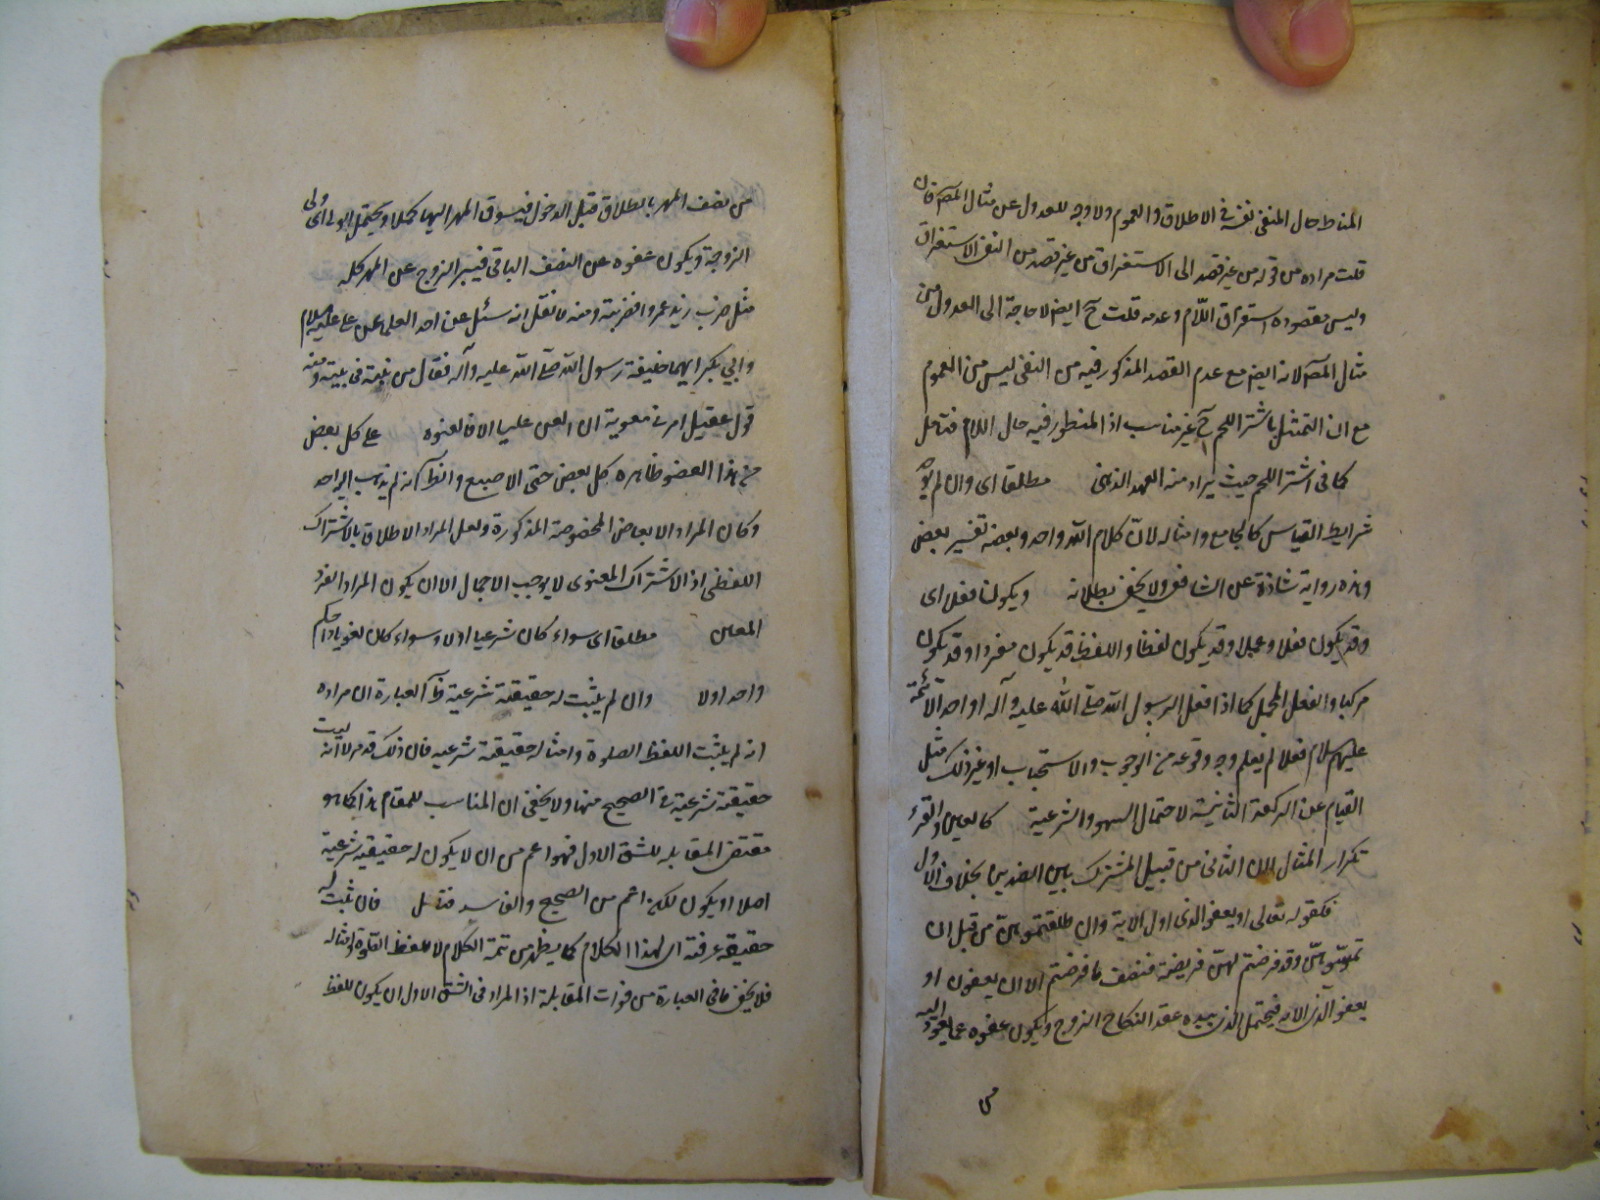 المناط حال المنفى نفسه فى الاطلاق والعموم ولا وجه للعدول عن مثال المصـ فان
قلت مراده من قوله من غير قصد الى الاستغراق من غير قصد من النفى الاستغراق
وليس مقصوده استغراق اللّام وعدمه قلت ح ايضـ لا حاجة الى العدول من
مثال المصـ لانه ايضـ مع عدم القصد المذكور فيه من النفى ليس من العموم
مع ان التمثيل باشتر اللحم ح غير مناسب اذ المنظور فيه حال اللام فتامل
كما فى اشتر اللحم حيث يراد منه العهد الذهنى مطلقا اى وان لم
شرايط القياس كالجامع وامثاله لان كلام الله واحد وبعضه تفسير بعض
وهذه رواية شاذة عن الشافعى ولا يخفى بطلانه ويكون فعلا اى
وقد يكون فعلا وعملا وقد يكون لفظا واللفظ قد يكون مفردا وقد يكون
مركبا والفعل المجمل كما اذا فعل الرسول الله صلّى الله عليه وآله او احد الائمة
عليهم سلام فعلا لم يعلم وجه وقوعه من الوجوب والاستحباب او غير ذلك مثل
القيام عن الركعة الثانية لاحتمال السهو والشرعية كالعين والقرء
تكرار المثال لان الثانى من قبيل المشترك بين الضدين بخلاف الاول
فكقوله تعالى او يعفو الذى اول الاية وان طلقتموهنّ من قبل ان
تمسّوهنّ وقد فرضتم لهنّ فريضة فنصف ما فرضتم الا ان يعفون او
يعفو الّذى الاية فيحتمل الذى بيده عقد النكاح الزوج ويكون عفوه عما يعود اليه
من
من نصف المهر بالطلاق قبل الدخول فيسوق المهر اليها كملا ويحتمل الولى اى ولى
الزوجة ويكون عفوه عن النصف الباقى فيبرا الزوج عن المهر كله
مثل ضرب زيد عمروا فضربته ومنه ما نقل انه سئل عن احد العلما عن على عليه سلام
وابي بكر ايهما خليفة رسول الله صلّى الله عليه وآله فقال من بنته فى بيته ومنه
قول عقيل امرنى معوية ان العن عليا الا فالعنوه على كل بعض
من هذا العضو ظاهره كل بعض حتى الاصبع والظـ انه لم يذهب اليه احد
وكان المراد الابعاض المخصوصة المذكورة ولعل المراد الاطلاق بالاشتراك
اللفظى اذ الاشتراك المعنوى لا يوجب الاجمال الا ان يكون المراد الفرد
المعين مطلقا اى سواء كان شرعيا اولا وسواء كان لغويا ذا حكم
واحد اولا وان لم يثبت له حقيقة شرعية ظـ العبارة ان مراده
ان لم يثبت اللفظ الصلوة وامثاله حقيقة شرعية فان ذلك قد مر لا انه ليت
حقيقة شرعية فى الصحيح منها ولا يخفى ان المناسب للمقام هذا كما هو
مقتضى المقابلة للشق الاول فهو اعم من ان لا يكون له حقيقة شرعية
اصلا او يكون لكنه اعم من الصحيح والفاسد فتامل فان ثبت له
حقيقة عرفية اى لهذا الكلام كما يظهر من تتمة الكلام لا للفظ الصلوة وامثاله
فلا يخفى ما فى العبارة من فوات المقابلة اذ المراد فى الشق الاول ان يكون للفظ